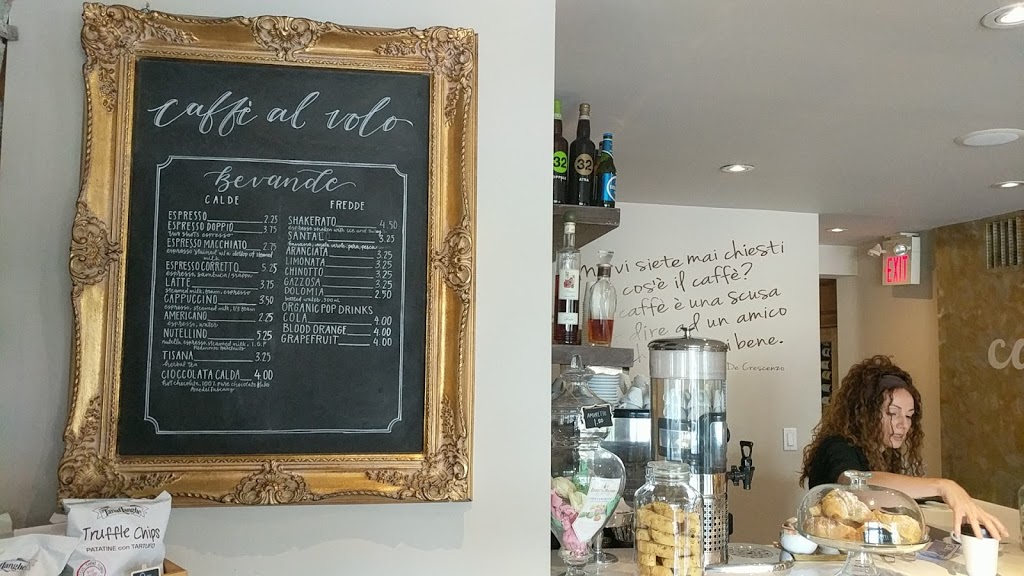 caffè al volo
Bevande
CALDE
ESPRESSO 2.25
ESPRESSO DOPPIO 3.75
two shots espresso
ESPRESSO MACCHIATO 2.75
espresso stained w/ a dollop of steamed milk
ESPRESSO CORRETTO 5.25
espresso, sambuca/grappa
LATTE 3.75
steamed milk, espresso
CAPPUCCINO 3.50
espresso, steamed milk,
AMERICANO 2.25
espresso, water
NUTELLINO 5.25
nutella, espresso, steamed milk,
TISANA 3.25
herbal tea
CIOCCOLATA CALDA 4.00
hot chocolate, 100% pure chocolate
FREDDE
SHAKERATO 4.50
espresso shaken with ice and
SANTAL 3.25
pera, pesca
ARANCIATA 3.25
LIMONATA 3.25
CHINOTTO 3.25
GAZZOSA 3.25
DOLOMIA 2.50
bottled water, 500ml
ORGANIC POP DRINKS
COLA 4.00
BLOOD ORANGE 4.00
GRAPEFRUIT 4.00
32
32
vi siete mai chiesti
cos'è il caffè?
caffè è una scusa
dire ad un amico
bene.
De Crescenzo
EXIT
AMARETTI
Truffle Chips
PATATINE con TARTUFO